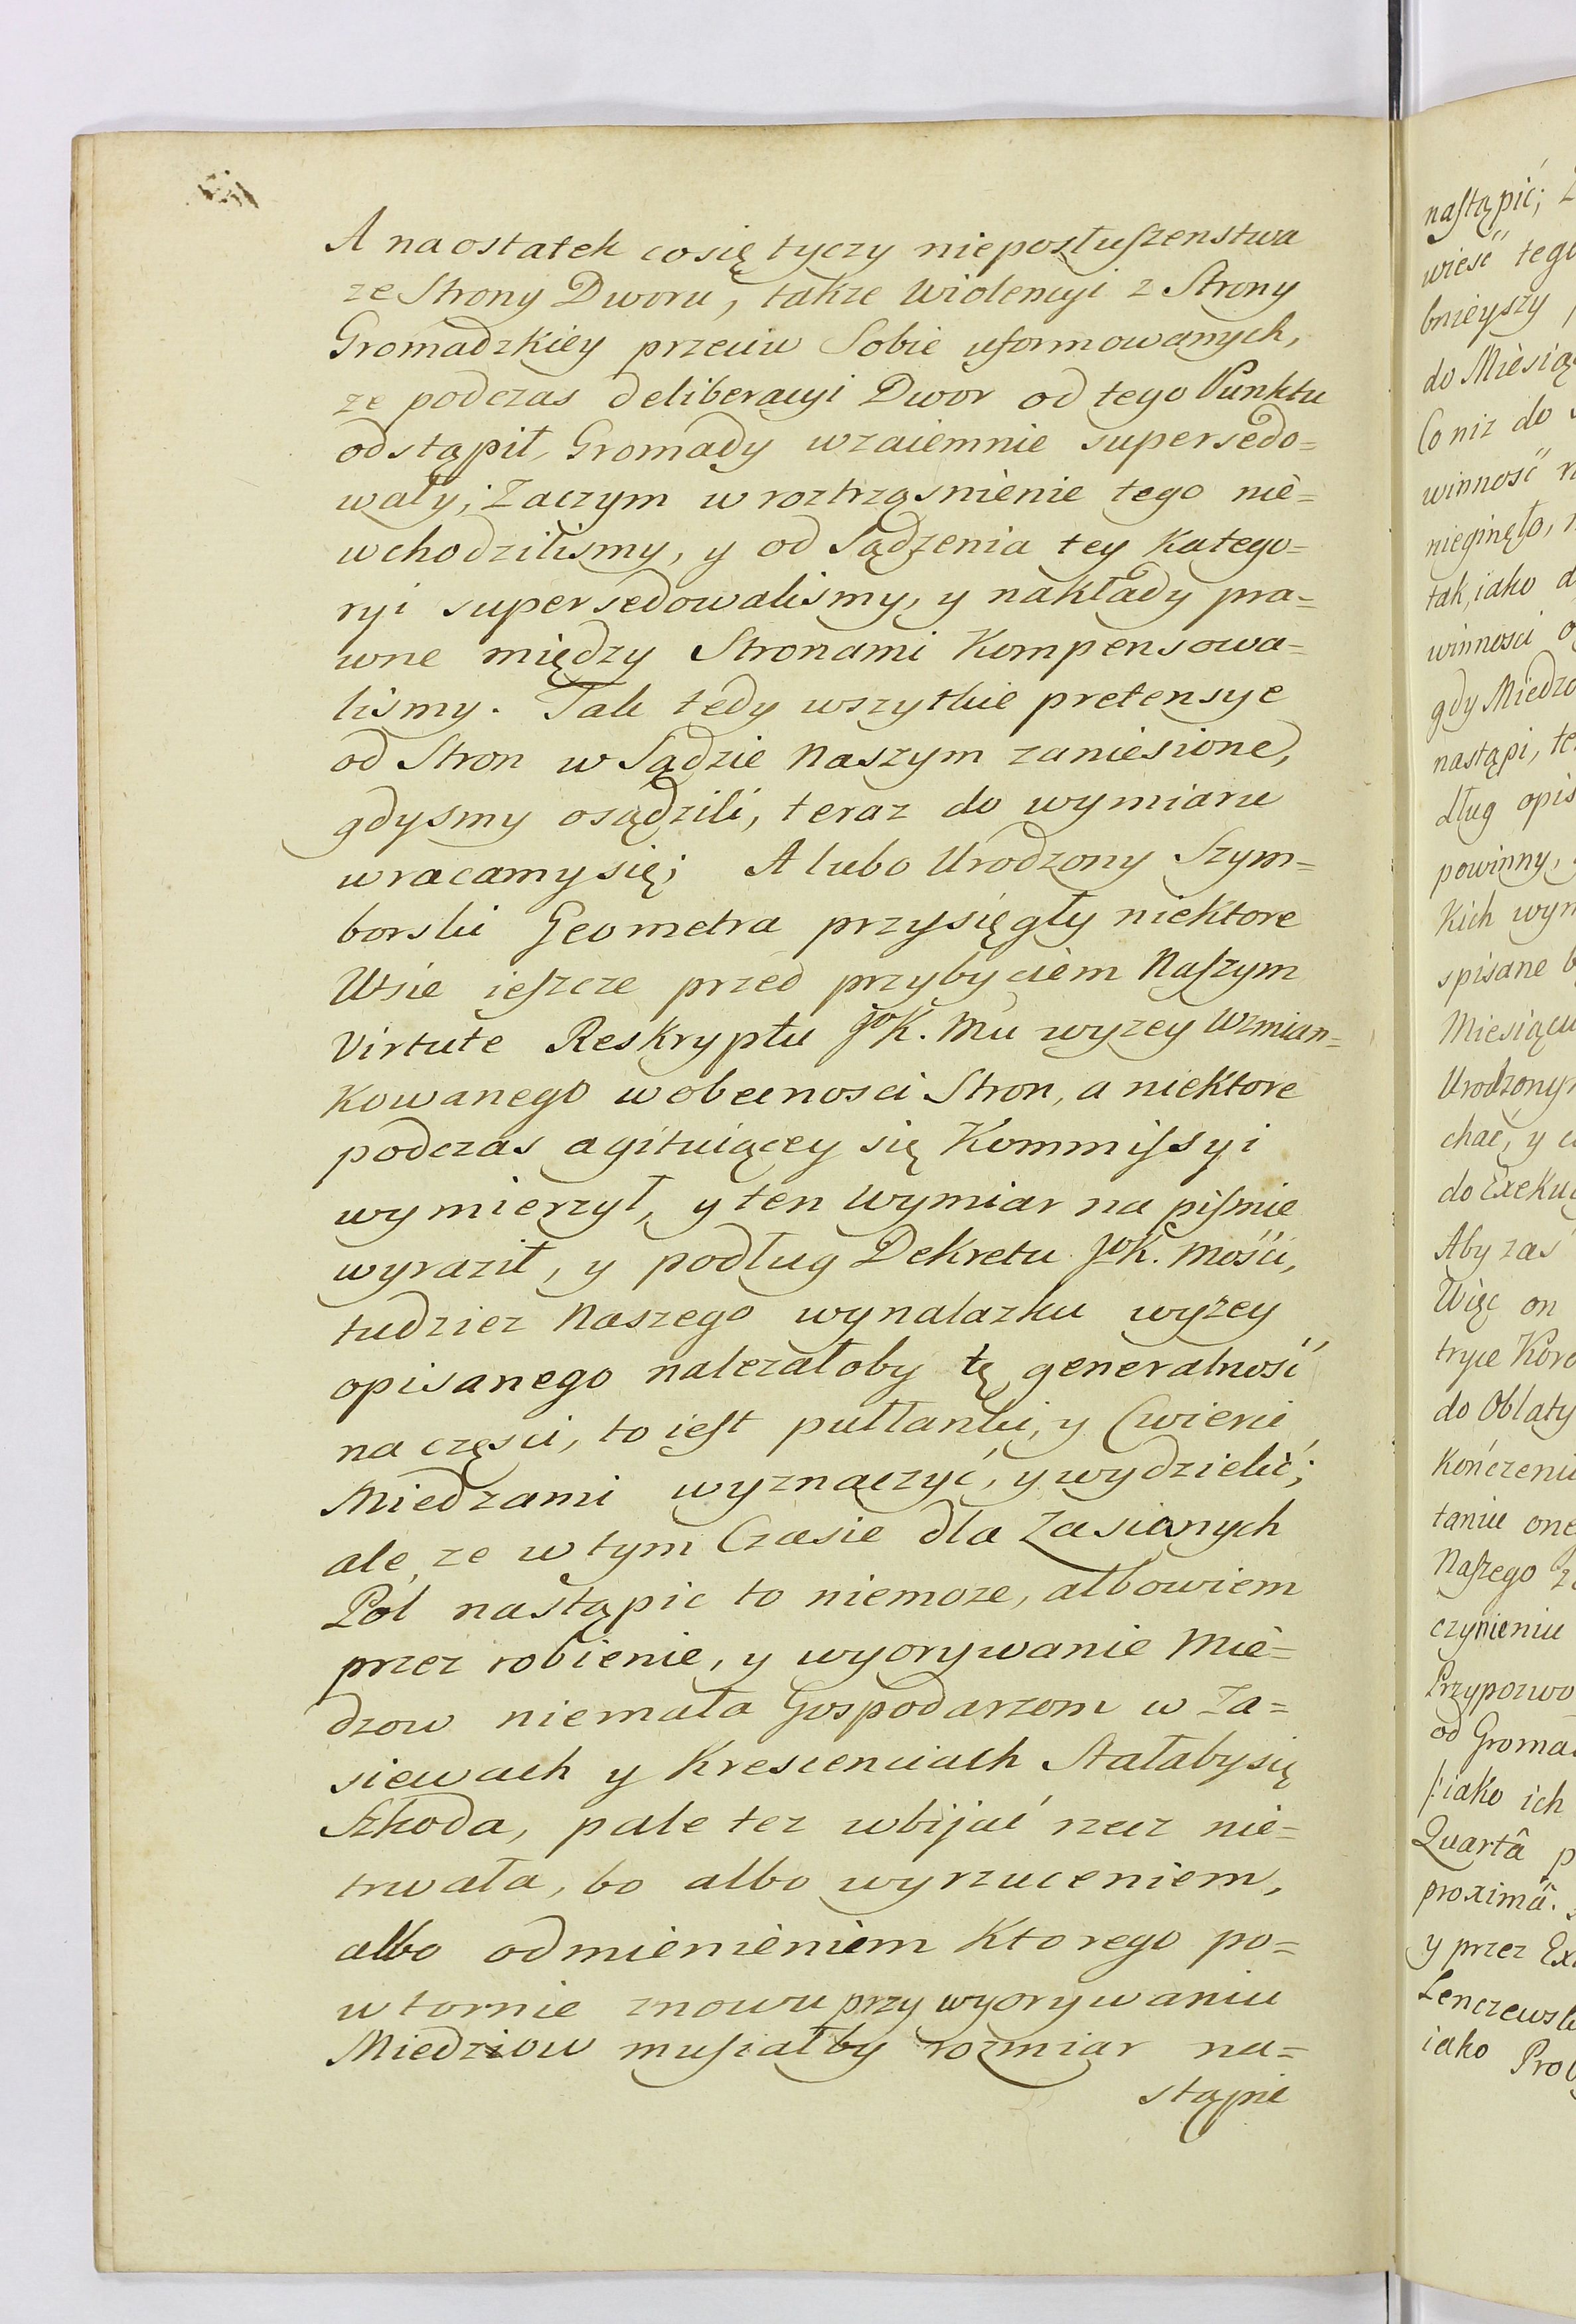 A naostatek co się tyczy nieposłuſzenstwa
ze Strony Dworu, takze Wiolencyi z Strony
Gromadzkiey przeciw Sobie uformowanych,
ze podczas deliberacyi Dwor od tego Punktu
odstąpił, Gromady wzaiemnie supersedo=
wały; Zaczym w roztrząsnienie tego nie=
wchodzilismy, y od Sądzenia tey Katego=
ryi supersedowalismy, y nakłady pra=
wne między Stronami Kompensowa=
lismy. Tak tedy wszytkie pretensye
od Stron w Sądzie Naszym zaniesione,
gdysmy osądzili, teraz do wymiaru
wracamy się; A lubo Urodzony Szym=
borski Geometra przysięgły niektore
Wsie ieſzcze przed przybyciem Naſzym
Virtute Reskryptu JoK. Mci wyzey Wzmian=
Kowanego w obecnosci Stron, a niektore
podczas agituiącey się Kommiſsyi
wymierzył, y ten Wymiar na piſmie
wyraził, y podług Dekretu JoK. Mości,
tudziez Naszego wynalazku wyżey
opisanego nalezałoby tę generalność
na częsci, to ieſt pułłanki, y Cwierci
Miedzami wyznaczyć, y wydzielić;
ale, ze w tym Czasie dla Zasianych
Pól nastąpic to niemoze, albowiem
przez robienie, y wyorywanie Mie=
dzow niemała Gospodarzom w Za=
siewach y Krescenciach Stałaby się
Szkoda, pale tez wbijać rzecz nie=
trwała, bo albo wyrzuceniem,
albo odmienieniem Ktorego po=
wtornie znowu przy wyorywaniu
Miedziow muſiałby rozmiar na=
stąpić
naſtąpić;
wieść tego
bnieyszy
do Miesią
Co niz do
winność
nieginęło,
tak, iako
winnosci
gdy Miedzo
nastąpi,
dług opis
powinny,
Kich wym
spisane
Miesiącu
Urodzonym
chać, y
do Exeku
Aby zaś
Więc on
trycę Koro
do Oblaty
Kończeniu
taniu one
Naſzego
czynieniu
Przypozwo
od Groma
iako ich
Quartâ
proximâ.
y przez
Lenczewsk
iako